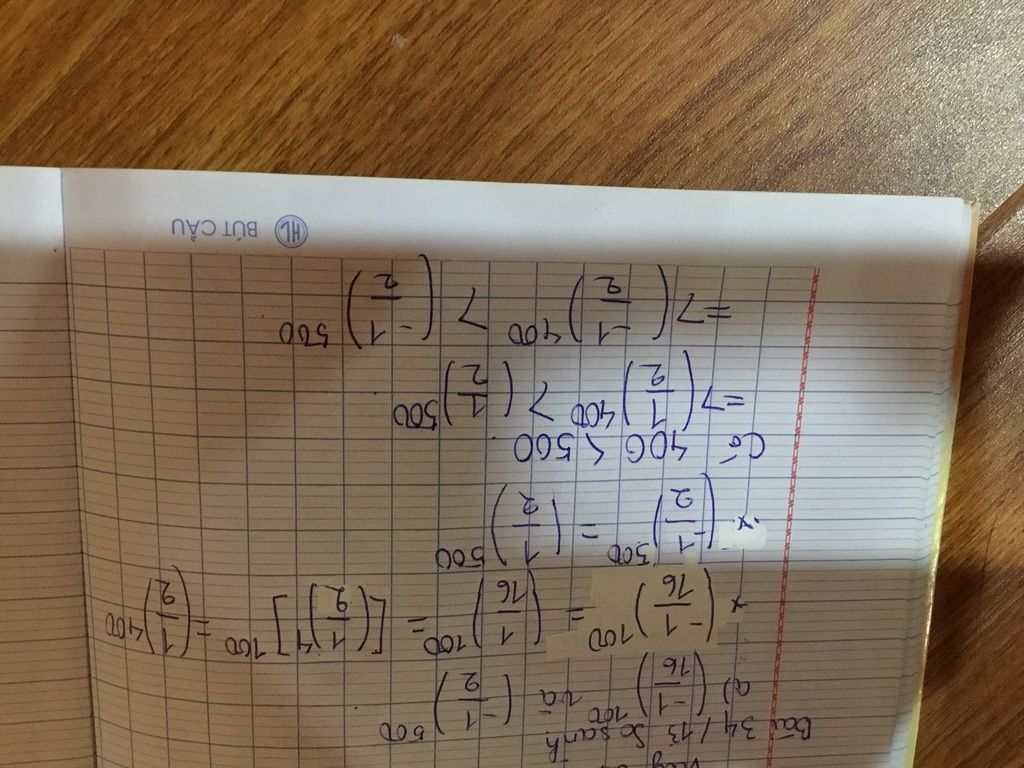 Bài 34/13 So sánh
a) (-1/16)^100 và (-1/2)^500
* (-1/16)^100 = (1/16)^100 = [(1/2)^4]^100 = (1/2)^400
* (-1/2)^500 = (1/2)^500
Có 400 < 500
=> (1/2)^400 > (1/2)^500
=> (-1/2)^400 > (-1/2)^500
HL BÚT CẦU